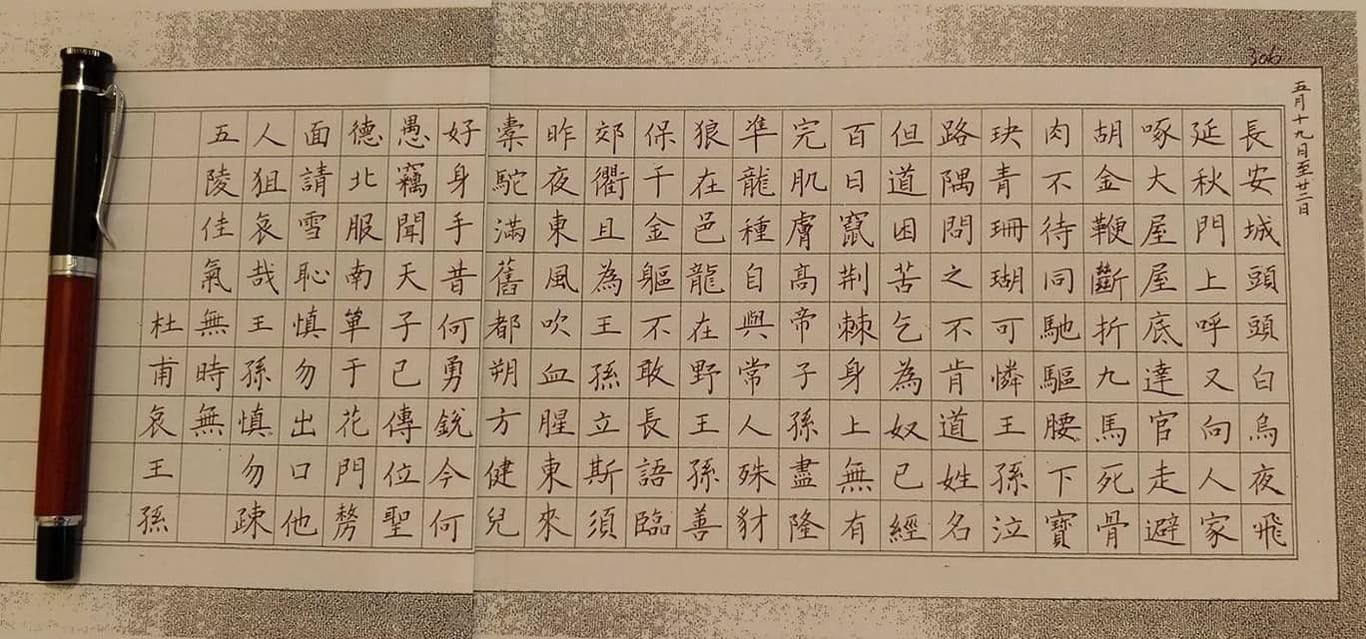 306
五月十九日至廿二日
長安城頭頭白烏夜飛
延秋門上呼又向人家
啄大屋屋底達官走避
胡金鞭斷折九馬死骨
肉不待同馳驅腰下寶
玦青珊瑚可憐王孫泣
路隅問之不肯道姓名
但道困苦乞為奴已經
百日竄荆棘身上無有
完肌膚高帝子孫盡隆
準龍種自與常人殊豺
狼在邑龍在野王孫善
保千金軀不敢長語臨
郊衢且為王孫立斯須
昨夜東風吹血腥東來
橐駝滿舊都朔方健兒
好身手昔何勇銳今何
愚竊聞天子已傳位聖
德北服南單于花門剺
面請雪恥慎勿出口他
人狙哀哉王孫慎勿疎
五陵佳氣無時無
杜甫哀王孫